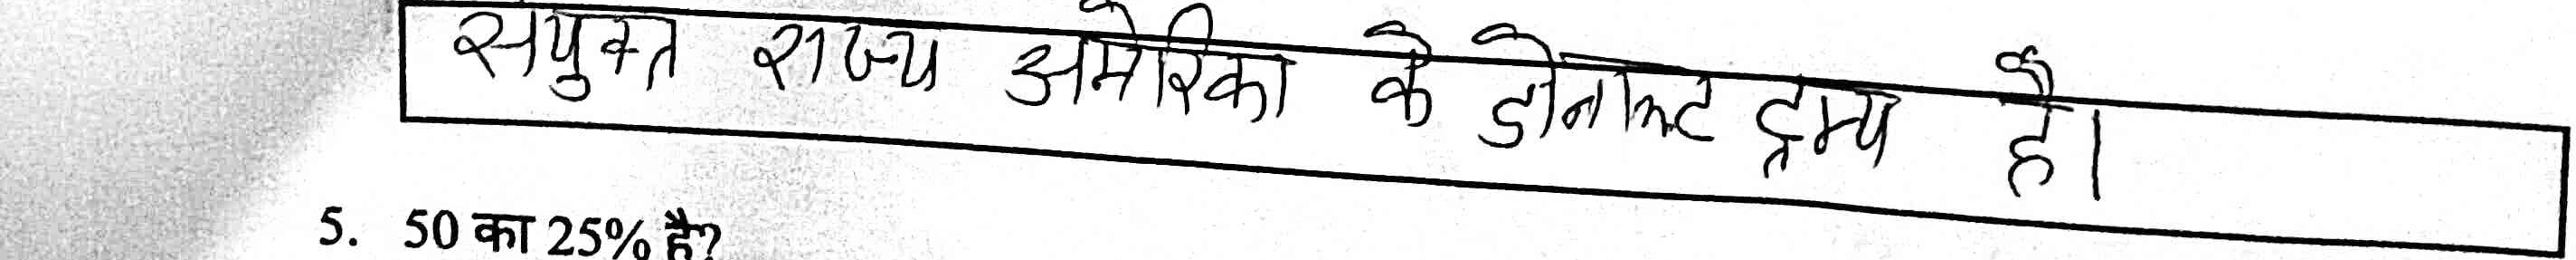 सयुक्त राज्य अमेरिका के डोनाल्ट ट्रम्प है।
5. 50 का 25% है?